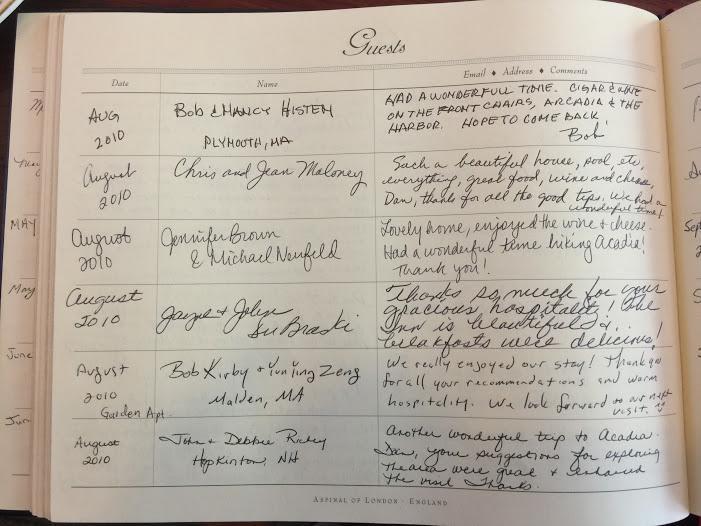 Guests
Date
Name
Email ♦ Address ♦ Comments
AUG
2010
Bob & NANCY HISTEN
PLYMOUTH, MA
HAD A WONDERFUL TIME. CIGAR & WINE
ON THE FRONT CHAIRS, ARCADIA & THE
HARBOR. HOPE TO COME BACK!
Bob
August
2010
Chris and Jean Maloney
Such a beautiful house, pool, etc,
everything, great food, wine and cheese,
Dan, thanks for all the good tips. We had a
wonderful time!
August
2010
Jennifer Brown
& Michael Neufeld
Lovely home, enjoyed the wine & cheese.
Had a wonderful time hiking Acadia!
Thank you!
August
2010
Jayne & John
Thanks so much for your
gracious hospitality! The
Inn is beautiful &
breakfasts were delicious!
August
2010
Garden Apt.
Bob Kirby & YunYing Zeng
Malden, MA
We really enjoyed our stay! Thank you
for all your recommendations and warm
hospitality. We look forward to our next
visit.
August
2010
John & Debbie
Hopkinton, NH
Another wonderful trip to Acadia.
Dan, your suggestions for exploring
the area were great & enhanced
the visit Thanks.
ASPINAL OF LONDON · ENGLAND
MAY
May
June
Jun